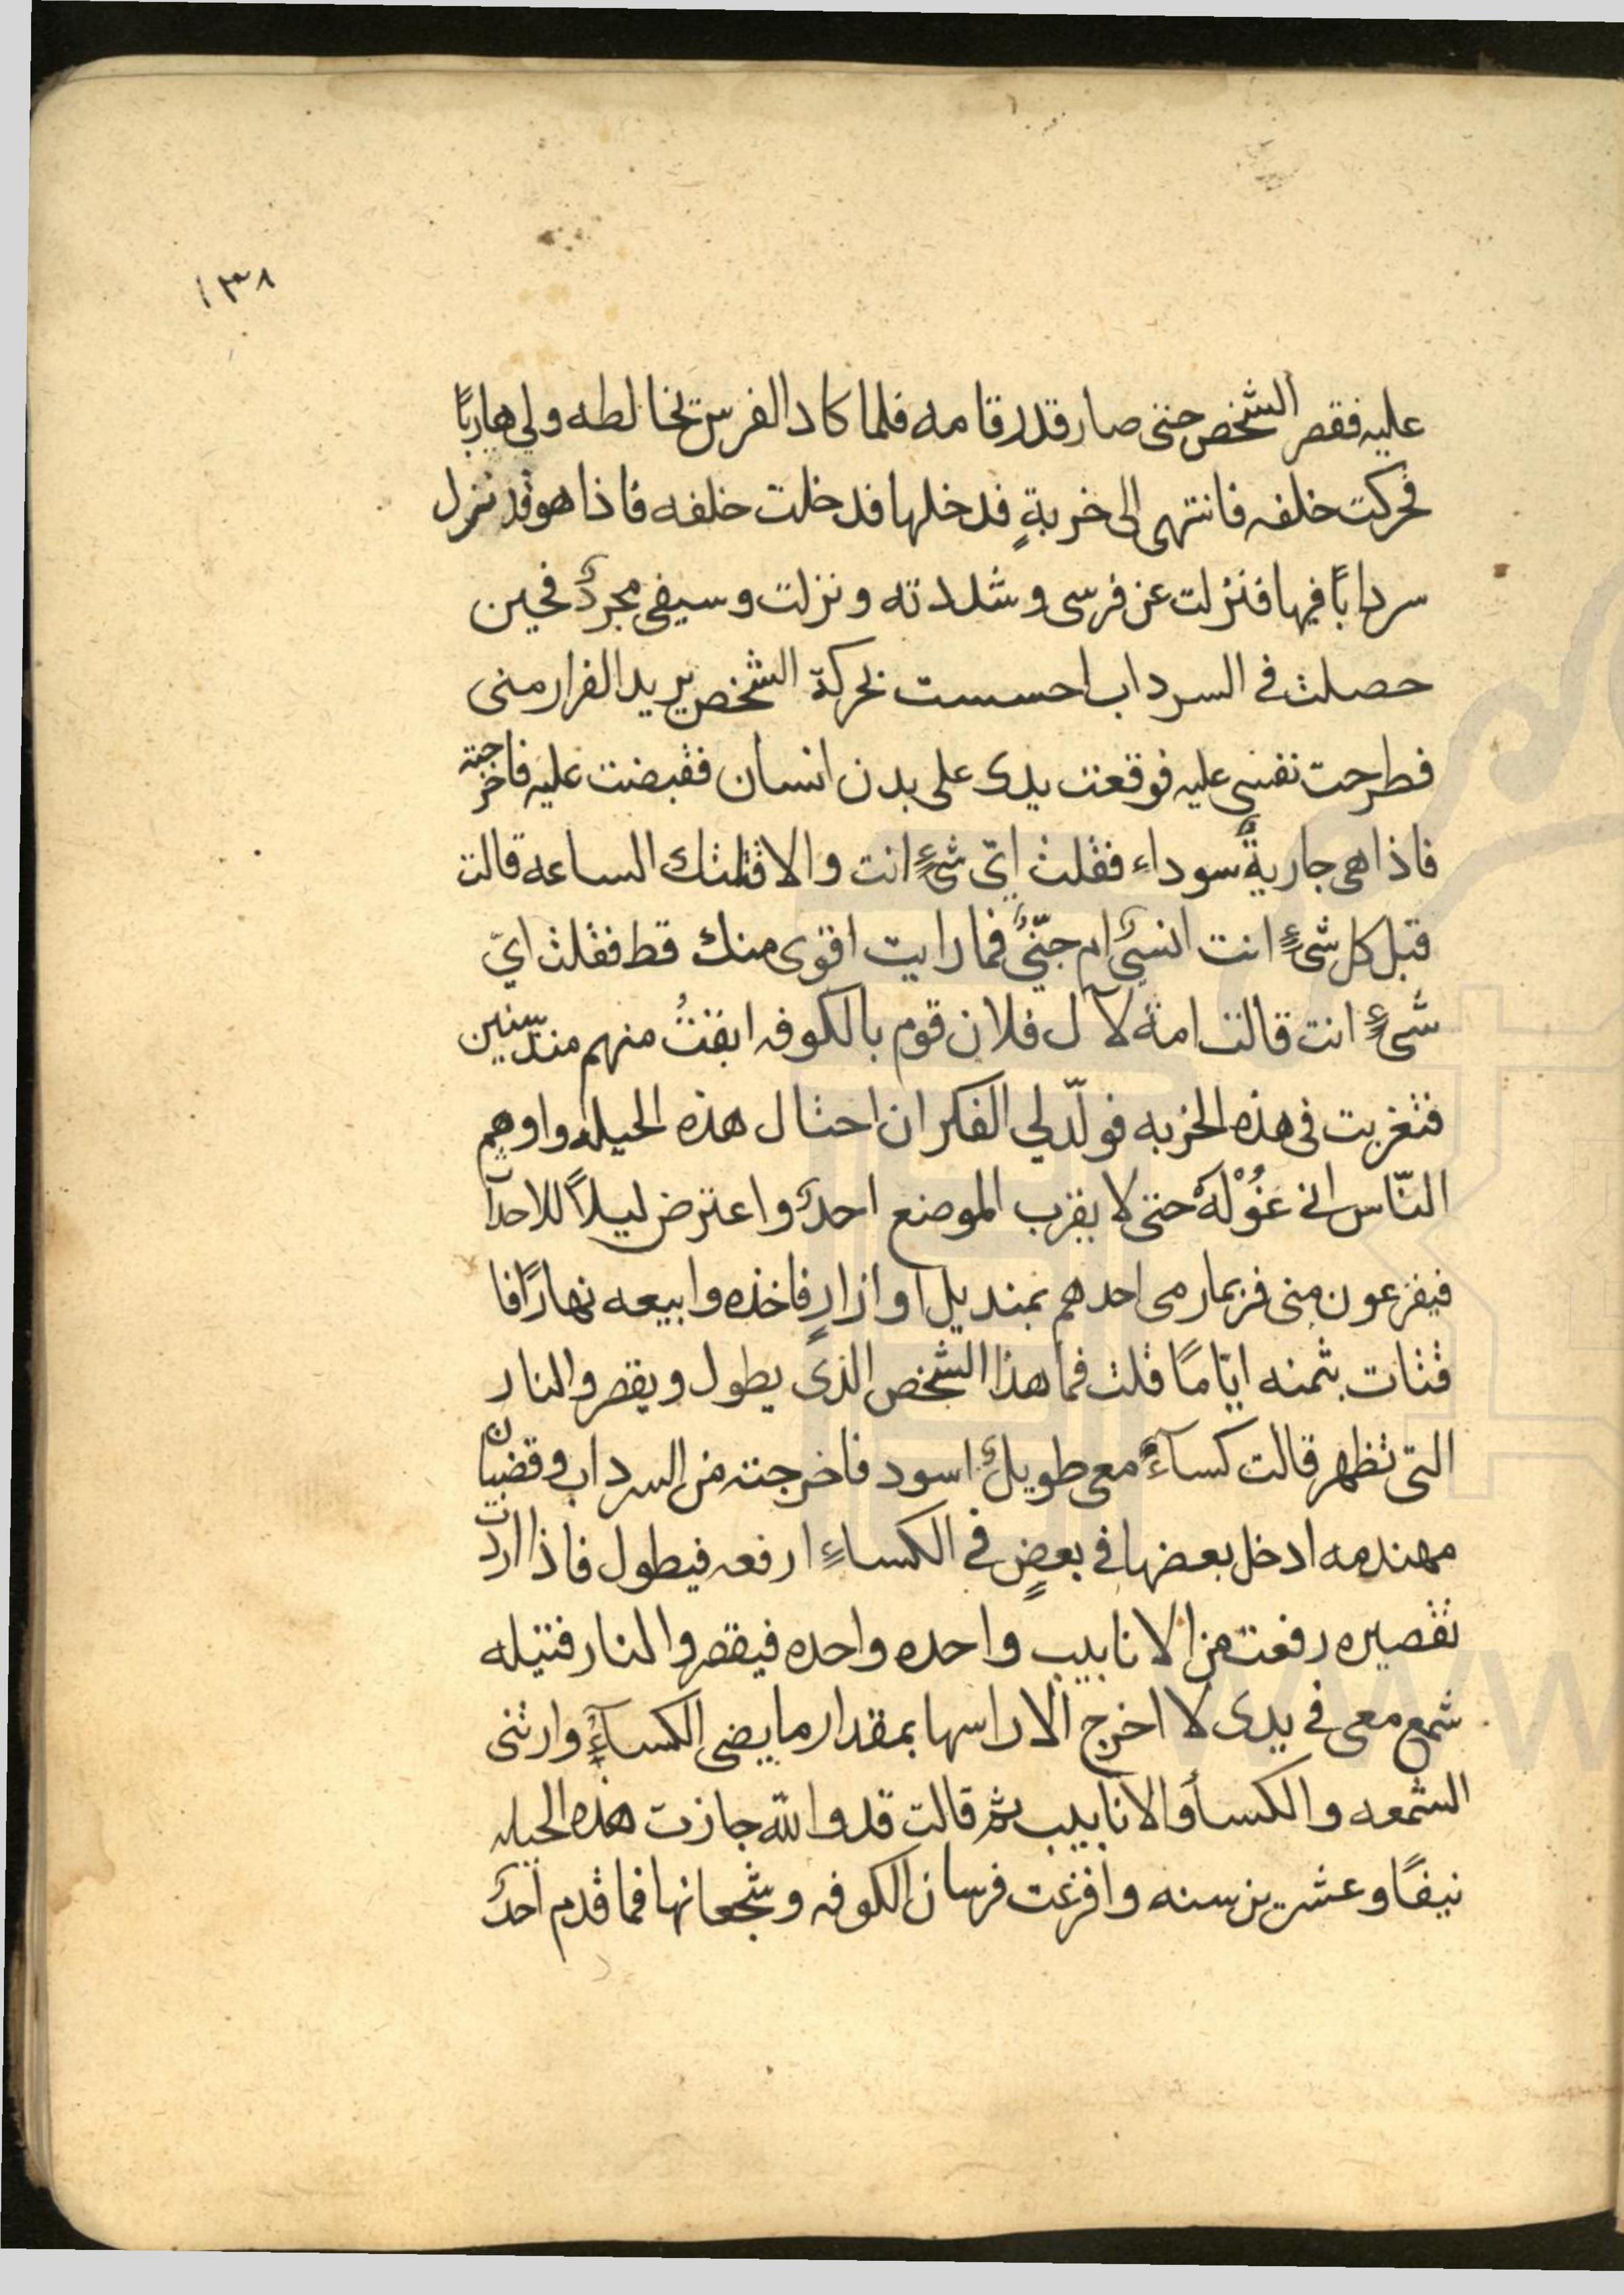 ١٣٨
عليه فقصر الشخص حتى صار قدر قامه فلما كاد الفرس تخالطه ولي هاربًا
فحركت خلفه فانتهى الى خربةٍ فدخلها فدخلت خلفه فاذا هو قد نزل
سردابًا فيها فنزلت عن فرسى وشددته ونزلت وسيفى مجردٌ فحين
حصلت فى السرداب احسست بحركة الشخص يريد الفرار منى
فطرحت نفسى عليه فوقعت يدى على بدن انسان فقبضت عليه فاخرجته
فاذا هى جاريةٌ سوداء فقلت اىّ شىءٍ انت والا قتلتك الساعه قالت
قبل كل شىءٍ انت انسىٌ ام جنّىٌ فما رايت اقوى منك قط فقلت اىّ
شىءٍ انت قالت امة لآل فلان قوم بالكوفه ابقتُ منهم منذ سنين
فتغربت فى هذه الخربه فولّد لي الفكر ان احتال هذه الحيله واوهم
النّاس انى غُوْلةٌ حتى لا يقرب الموضع احدٌ واعترض ليلاً للاحداث
فيفزعون منى فربما رمى احدهم بمنديل او ازارٍ فاخذه وابيعه نهارًا فا
قتات بثمنه ايّامًا قلت فما هذا الشخص الذى يطول ويقصر والنار
التى تظهر قالت كساءٌ معى طويلٌ اسود فاخرجته من السرداب وقضبانٌ
مهندمه ادخل بعضها فى بعضٍ فى الكساءِ ارفعه فيطول فاذا اردت
تقصيره رفعت من الانابيب واحده واحده فيقصر والنار فتيله
شمع معى فى يدى لا اخرج الا راسها بمقدار ما يضى الكساءُ وارتنى
الشمعه والكسأ والانابيب ثم قالت قد والله جازت هذه الحيله
نيفًا وعشرين سنه وافزعت فرسان الكوفه وشجعانها فما قدم احدٌ